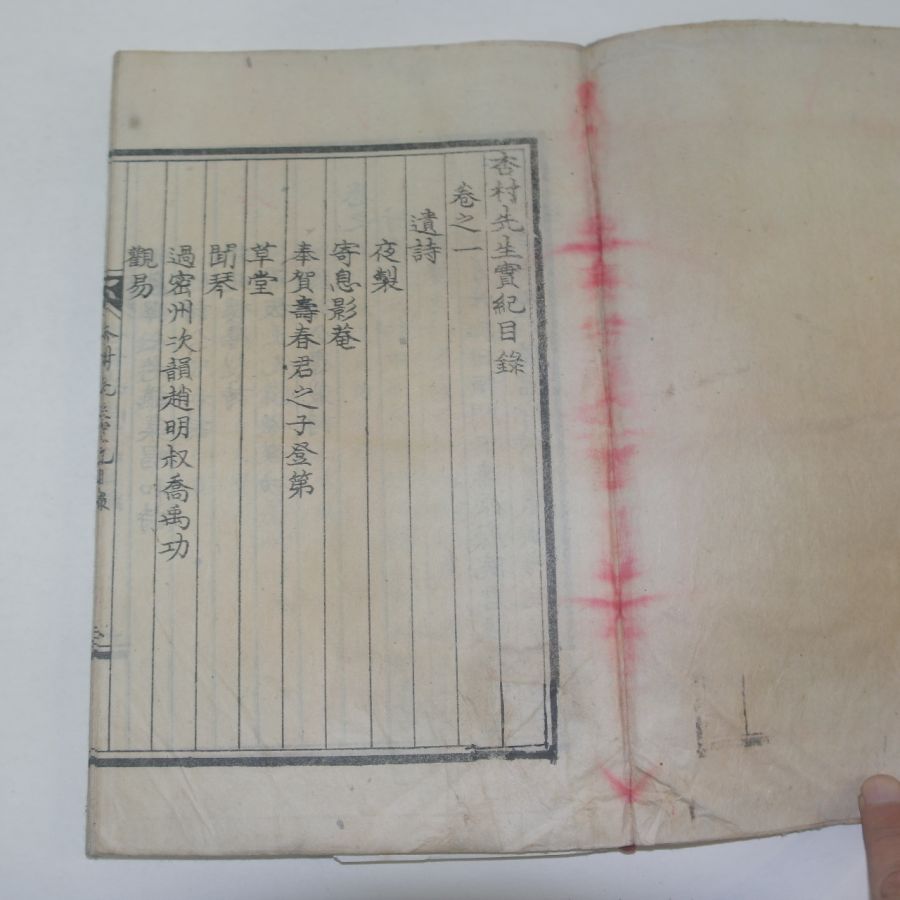 杏村先生實紀目錄
卷之一
遺詩
夜製
寄息影菴
奉賀壽春君之子登第
草堂
聞琴
過密州次韻趙明叔喬禹功
觀易
杏村先生實紀目錄